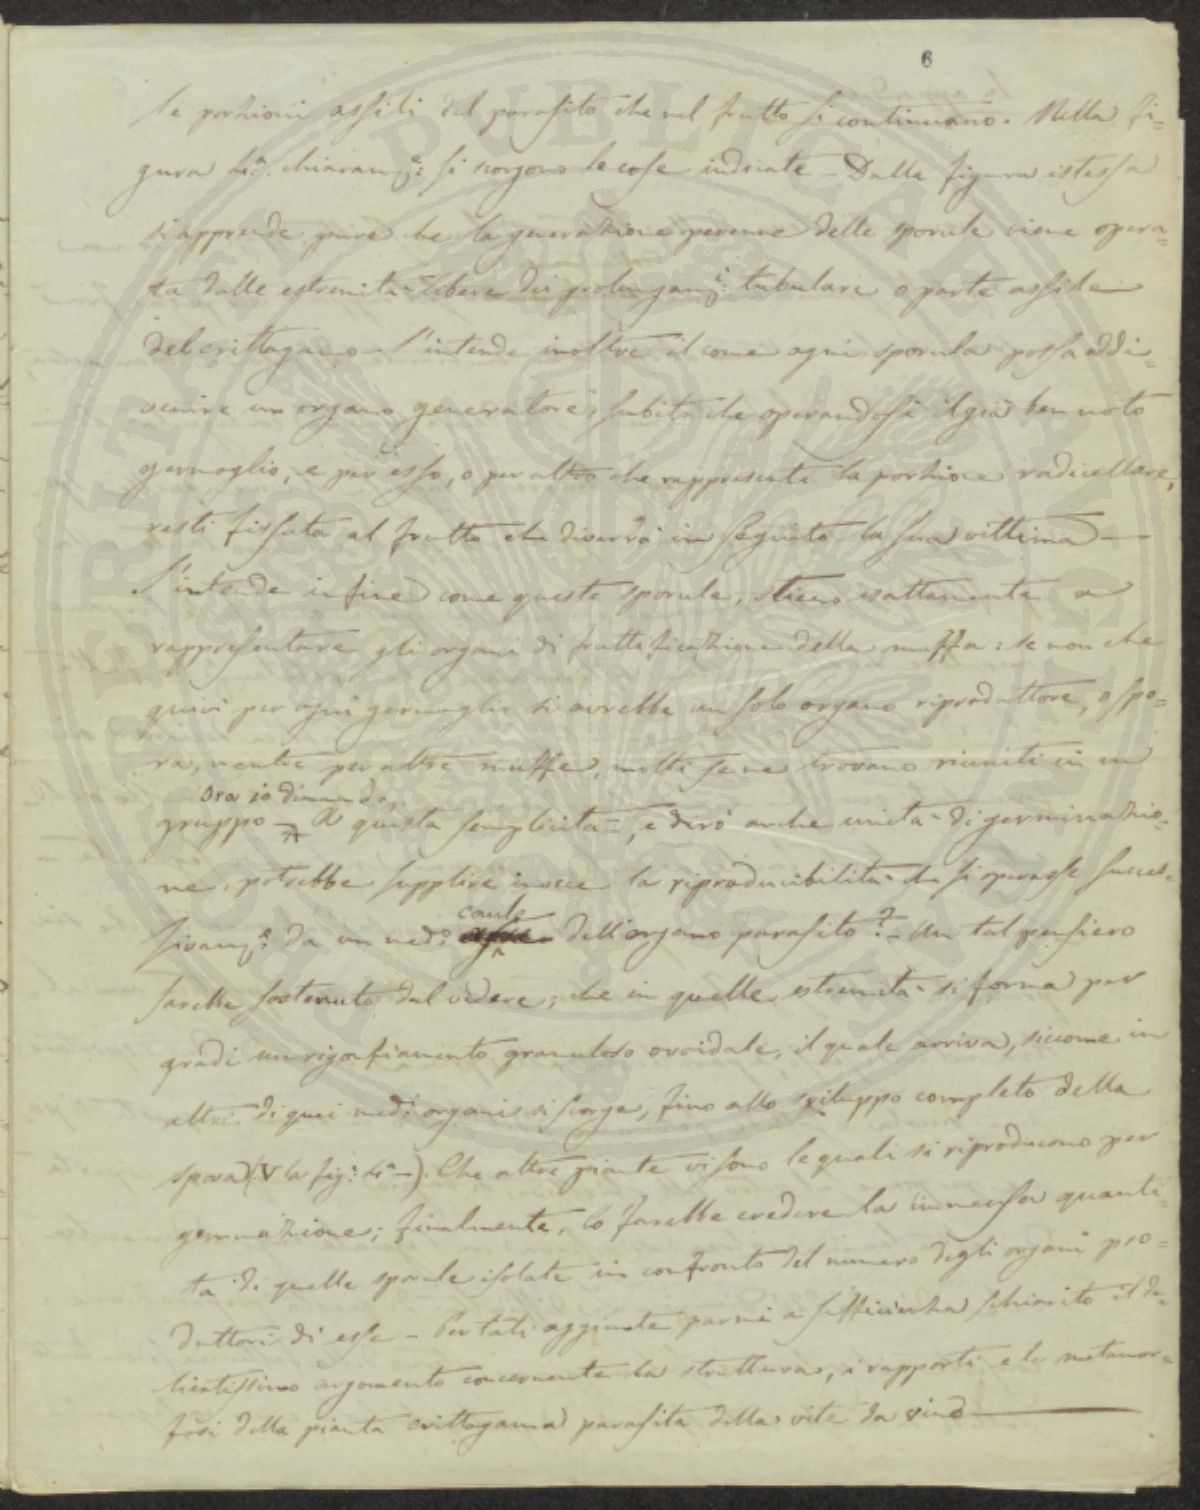 6
le porzioni assili del parasito che nel frutto si continuano. Nella fi=
gura 4ª. chiaramᵉ: si scorgono le cose indicate – Dalla figura istessa
si apprende pure che la generazione perenne delle sporule viene opera=
ta dalle estremità libere dei prolungamⁱ: tubulari o parte assile
del crittogamo – S'intende inoltre il come ogni sporula possa addi=
venire un organo generatore, subito che operandosi il già ben noto
germoglio, e per esso, o per altro che rappresenti la porzione radicellare,
resti fissata al frutto che diverrà in seguito la sua vittima —
S'intende infine come queste sporule, stieno esattamente a
rappresentare gli organi di fruttificazione della muffa: se non che
quivi per ogni germoglio si avrebbe un solo organo riproduttore, o spo=
ra, mentre per altre muffe, molti se ne trovano riuniti in un
Ora io dimando,
gruppo – A questa semplicità =, e dirò anche unità di germinazio=
ne, potrebbe supplire invece la riproducibilità che si operasse succes=
sivamᵉ: da un medᵒ caule dell'organo parasito? – Un tal pensiero
sarebbe sostenuto dal vedere, che in quelle estremità si forma per
gradi un rigonfiamento granuloso ovoidale, il quale arriva, siccome in
altri di quei medⁱ organi si scorge, fino allo sviluppo completo della
spora (V la figª: 4ª –). Che altre piante vi sono le quali si riproducono per
gemmazione; finalmente, lo farebbe credere la immensa quanti=
tà di quelle sporule isolate in confronto del numero degli organi pro=
duttori di esse – Per tali aggiunte parmi a sufficienza schiarito il de=
licatissimo argomento concernente la struttura, i rapporti e le metamor=
fosi della pianta crittogama parasita della vite da vino —